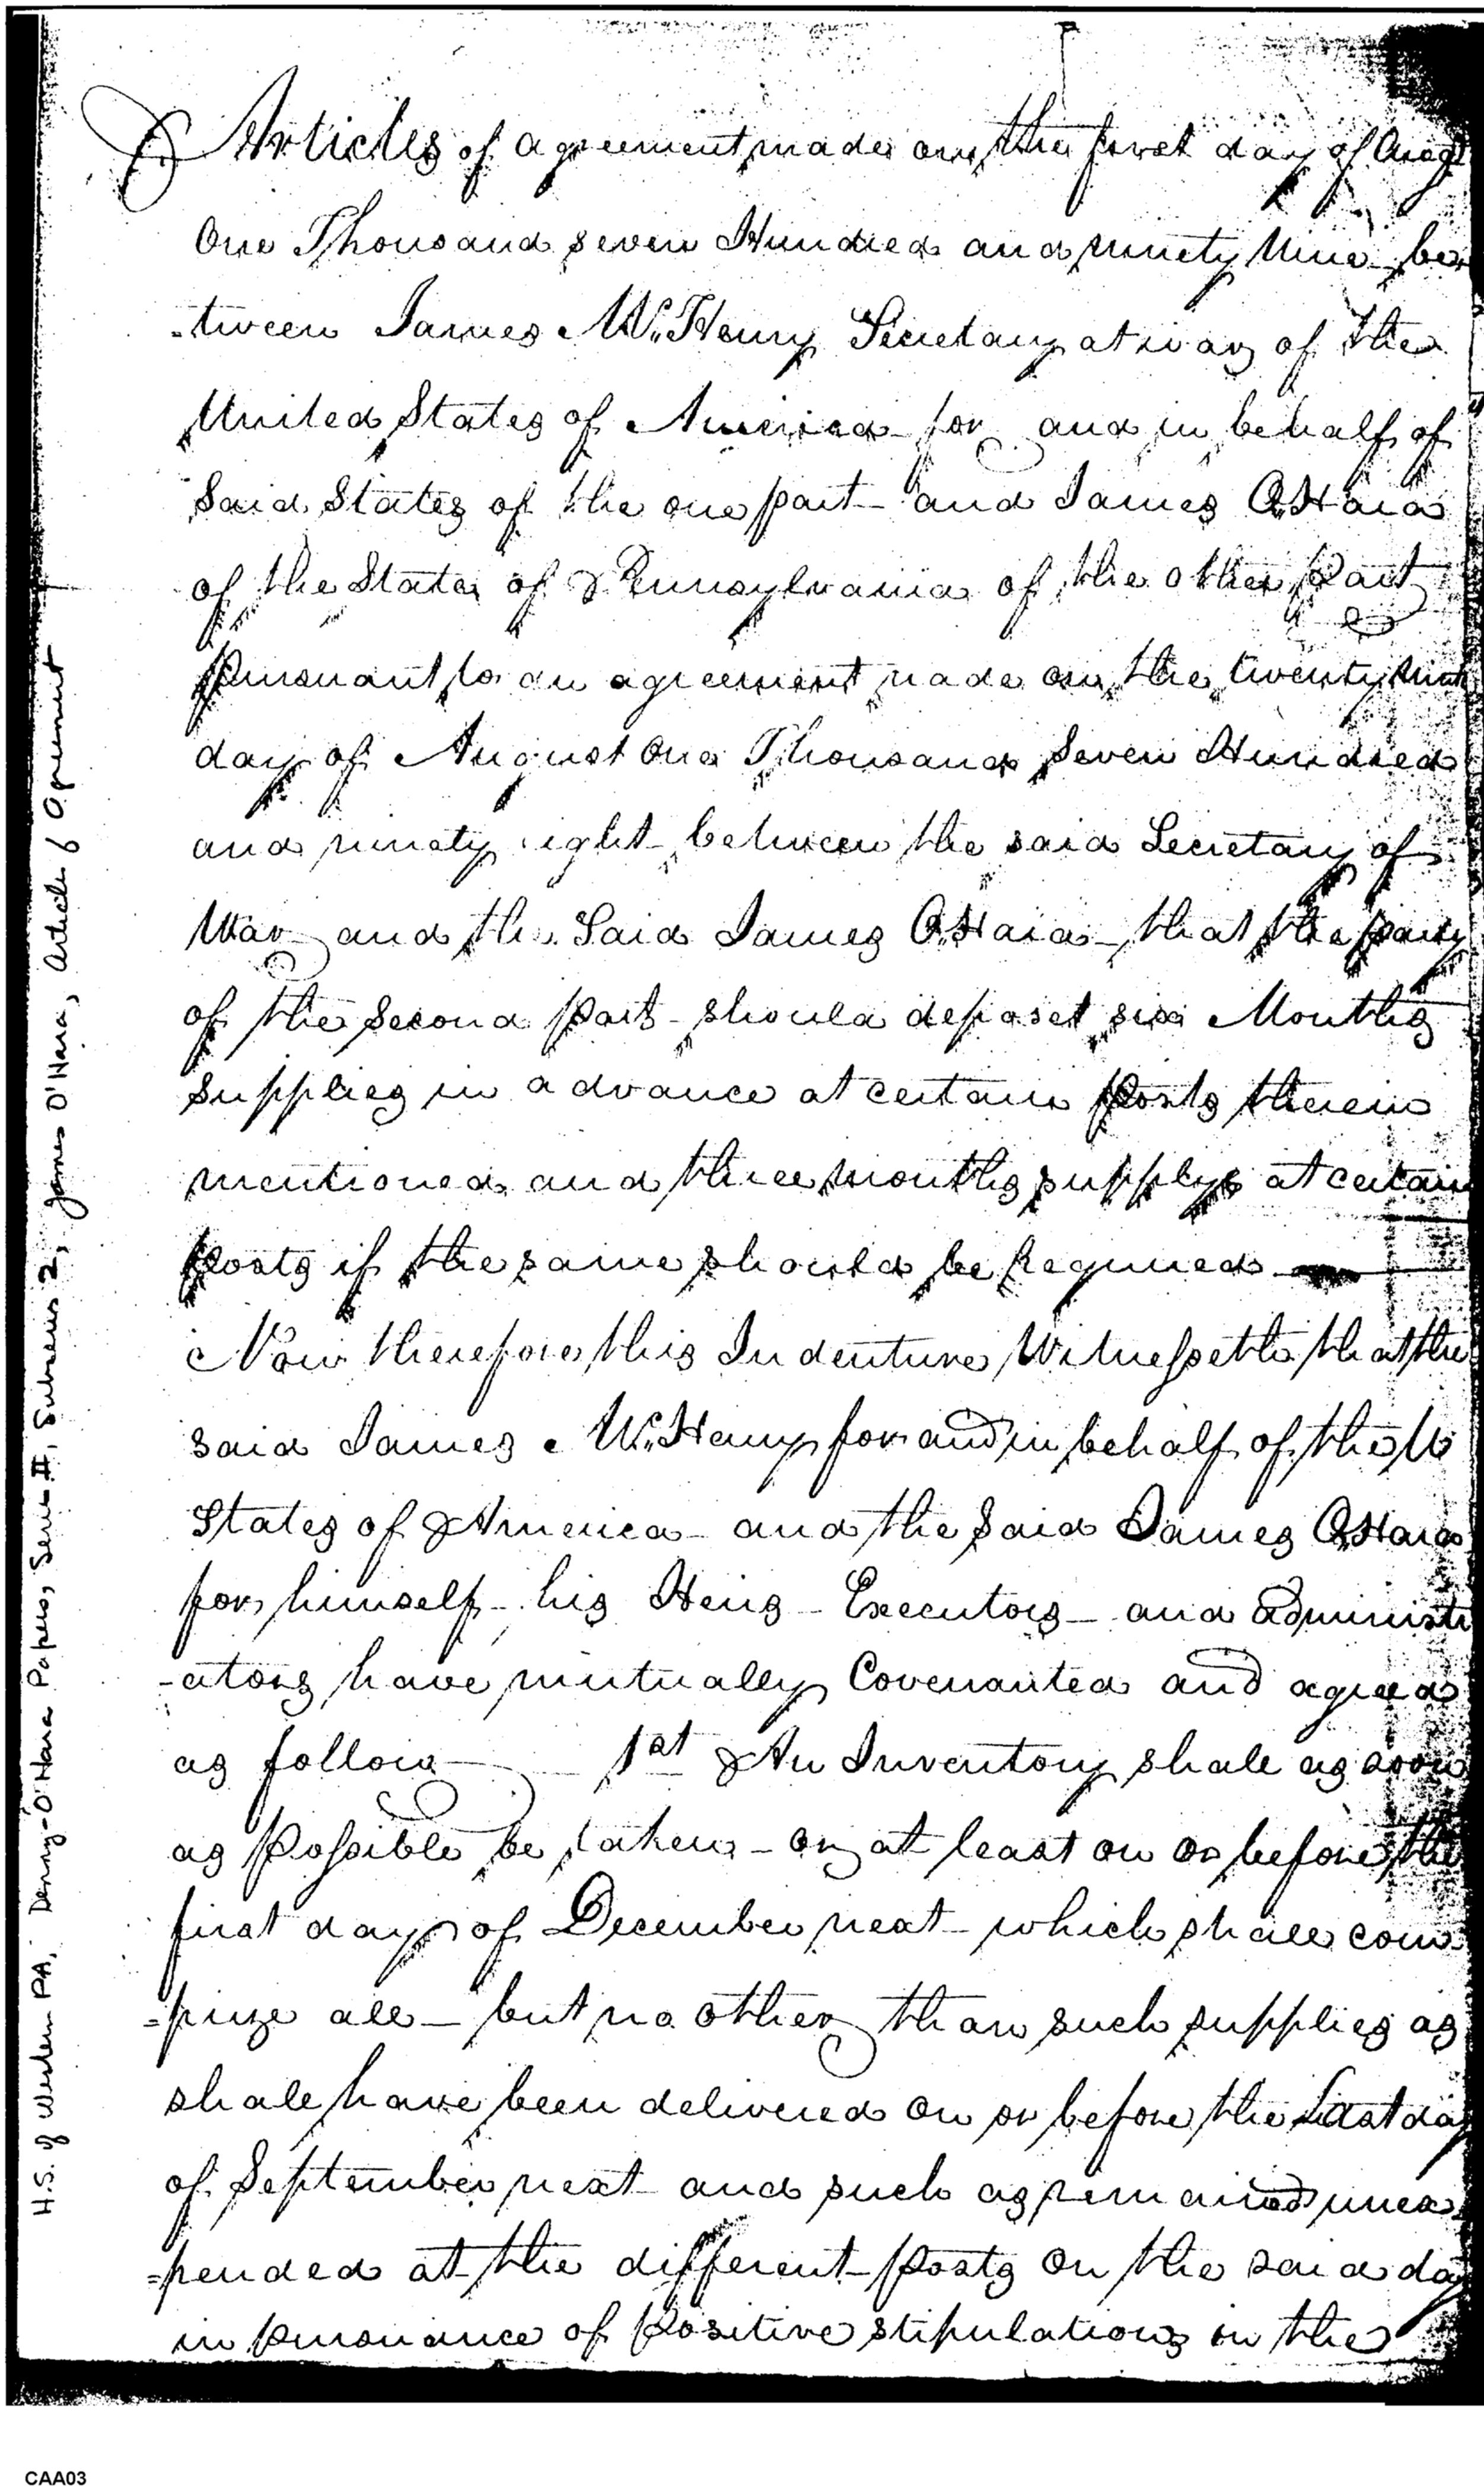 Articles of agreement made on the first day of Augt
One Thousand seven Hundred and ninety Nine be
-tween James McHenry Secretary at war of the
United States of America for and in behalf of
Said States of the one part and James OHara
of the State of Pennsylvania of the other Part
Pursuant to an agreement made on the twenty
day of August One Thousand Seven Hundred
and ninety eight between the said Secretary of
War and the Said James OHara that the party
of the Second Part should deposet six Months
supplies in advance at certain Posts therein
mentioned and three months supplys at certain
Posts if the same should be Required
Now therefore this Indenture Witnesseth that the
said James McHenry for and in behalf of the U
States of America and the Said James OHara
for himself his Heirs Executors and Administr
-ators have mutually Covenanted and agreed
as follow 1st An Inventory shall as soon
as Possible be taken or at least on or before the
first day of December next which shall com
=prize all but no other than such supplies as
shall have been delivered on or before the Last day
of September next and such as remained unex
=pended at the different Posts on the said day
in Pursuance of Positive stipulations in the
H.S. of Western PA, Denny-O'Hara Papers, Series II, Subseries 2, James O'Hara, Article of Agreement
CAA03